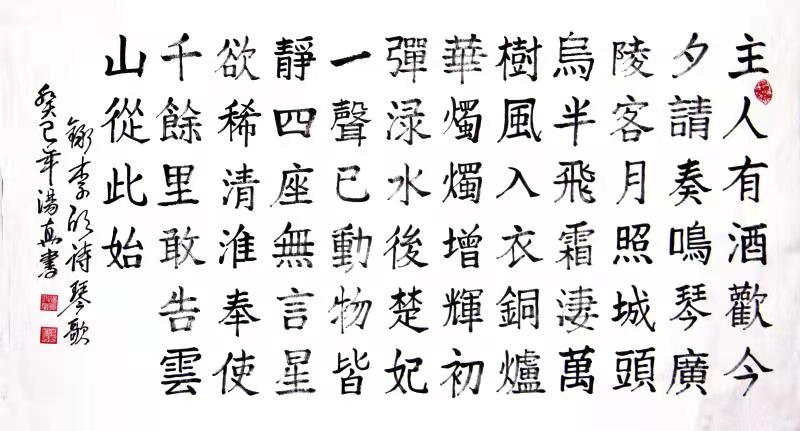 主人有酒歡今
夕請奏鳴琴廣
陵客月照城頭
烏半飛霜淒萬
樹風入衣銅爐
華燭燭增輝初
彈渌水後楚妃
一聲已動物皆
靜四座無言星
欲稀清淮奉使
千餘里敢告雲
山從此始
錄李頎诗琴歌
癸巳年湯真書